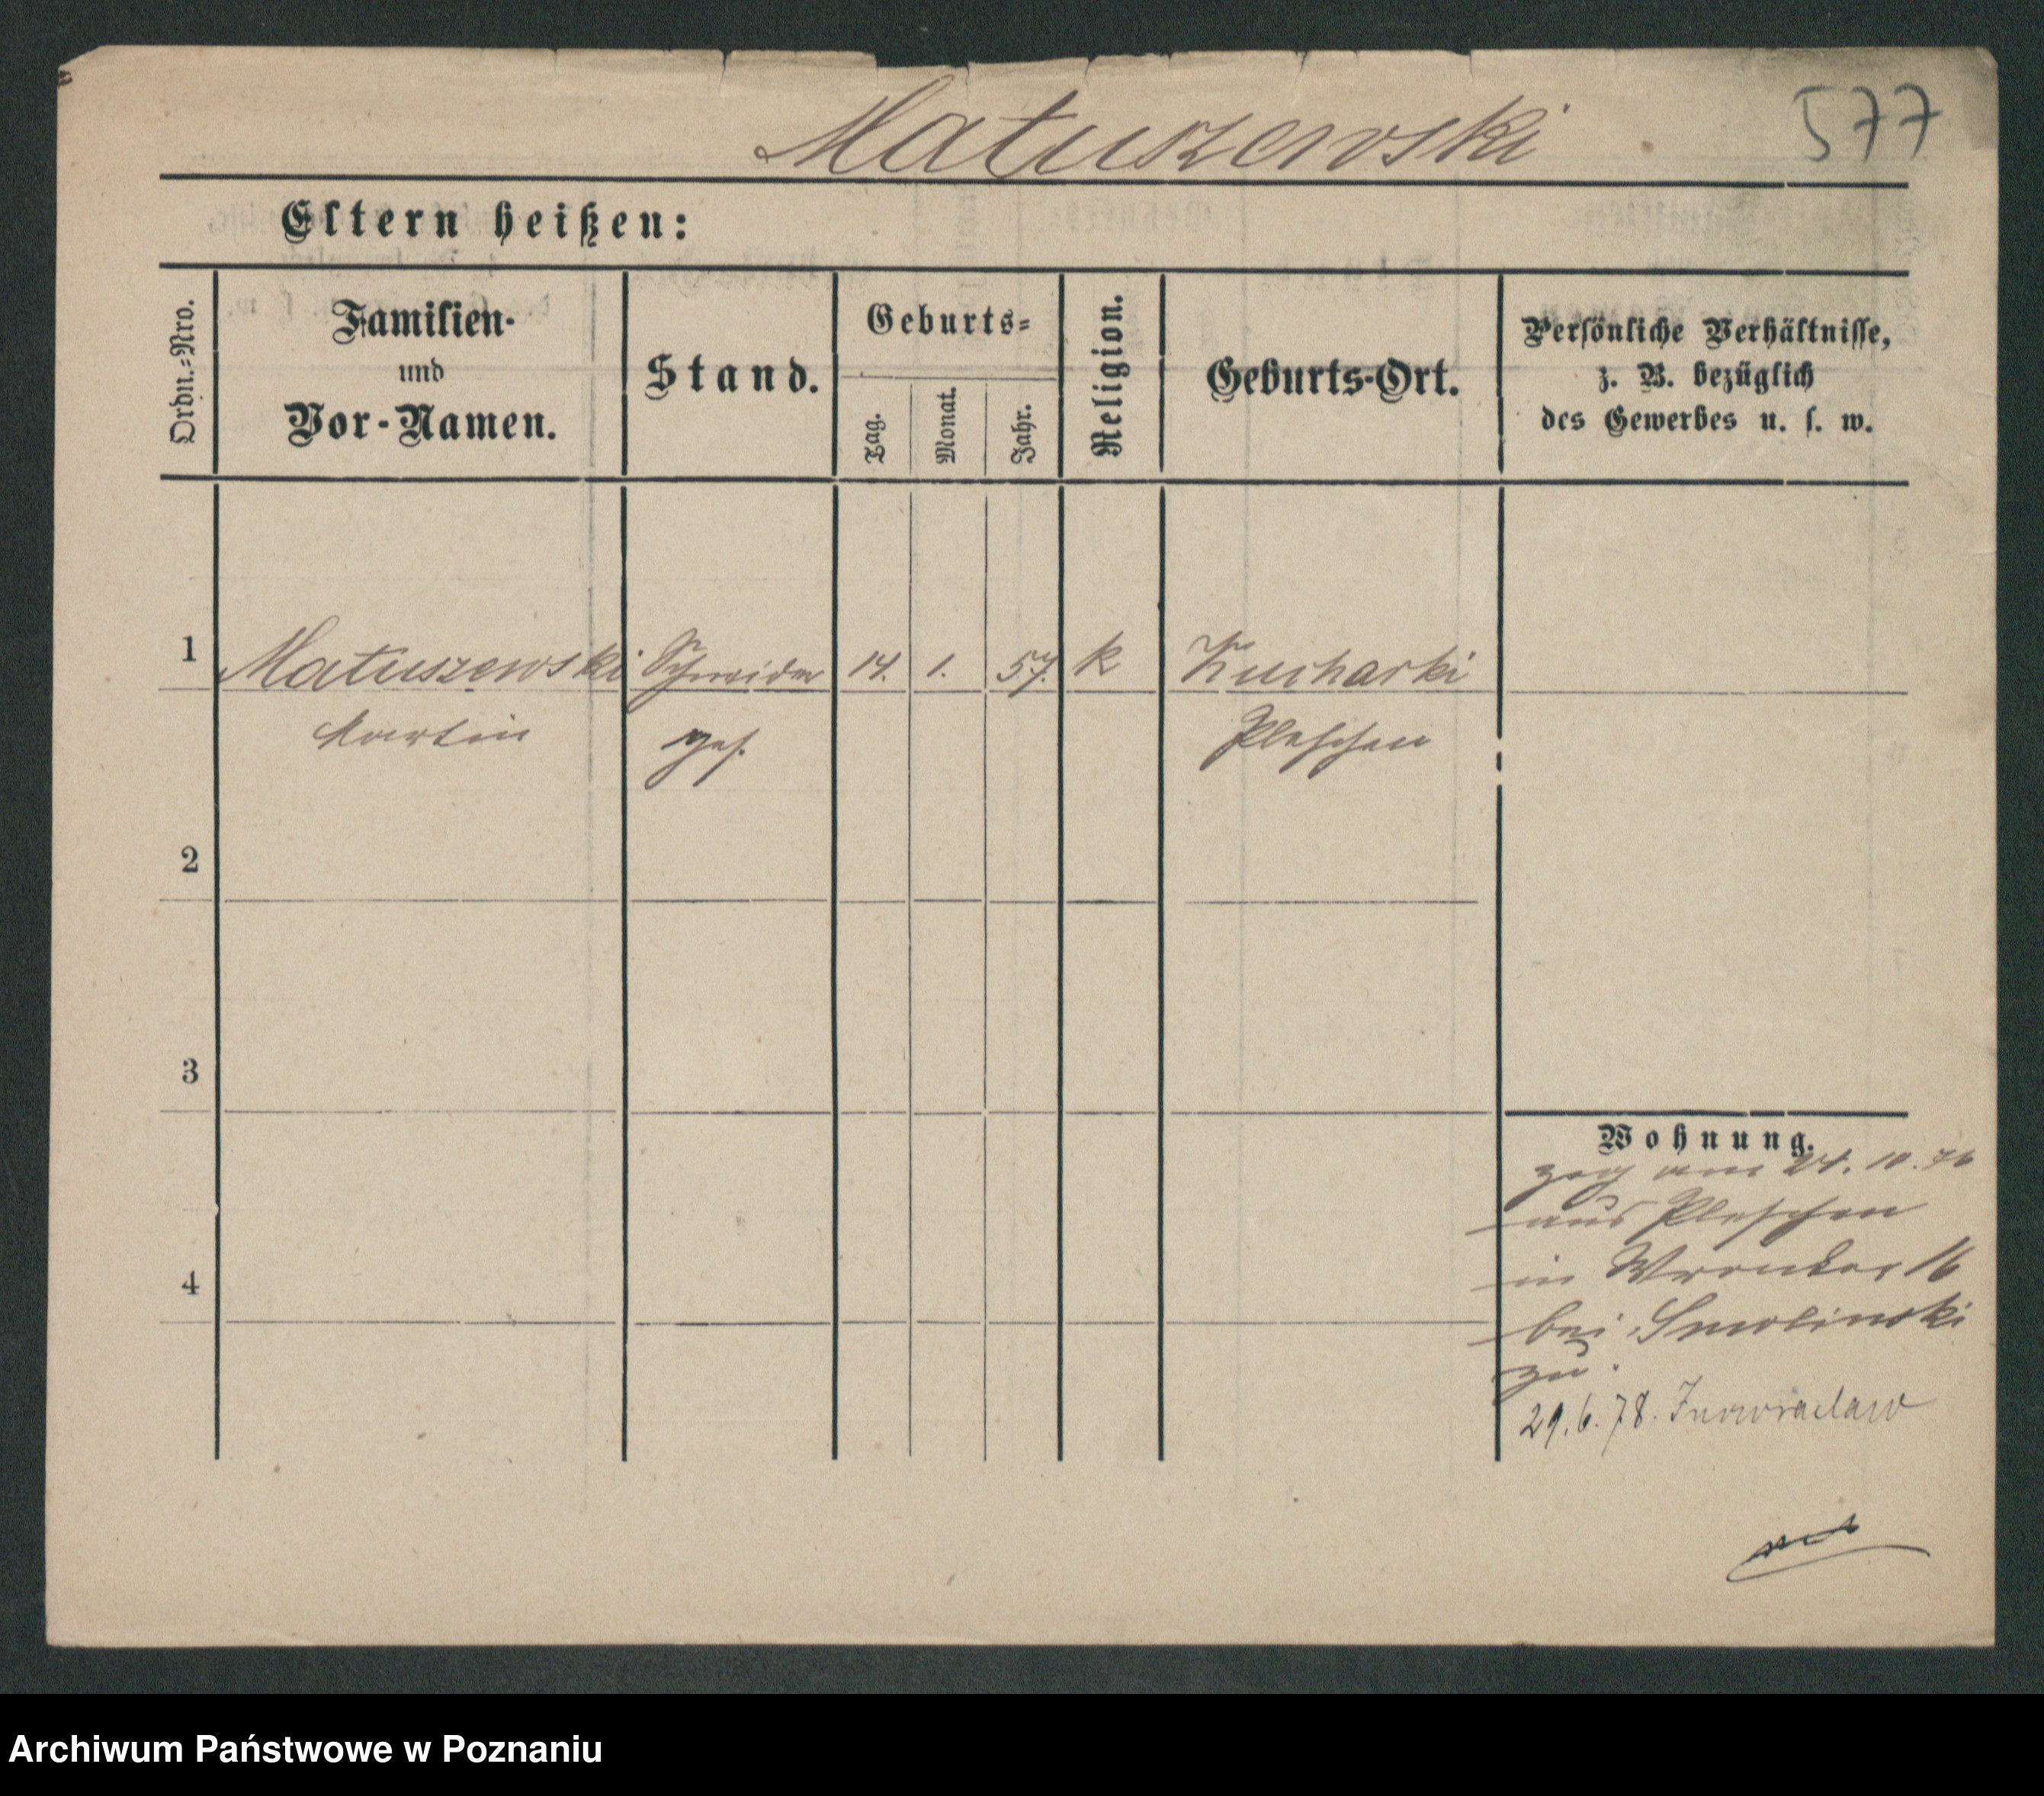 Matuszewski 577
Eltern heißen:
Ordn.-Nro.
Familien-
und
Vor-Namen.
Stand.
Geburts-
Tag.
Monat.
Jahr.
Religion.
Geburts-Ort.
Persönliche Verhältnisse,
z. B. bezüglich
des Gewerbes u. s. w.
1 Matuszewski Schneider 14. 1. 57. k Kucharki
Martin ges. Pleschen
2
3
4
Wohnung.
zog am 24. 10. 76
aus Pleschen
in Wronker 16
bei Smolinski
zu.
29. 6. 78. Inowraclaw
Archiwum Państwowe w Poznaniu